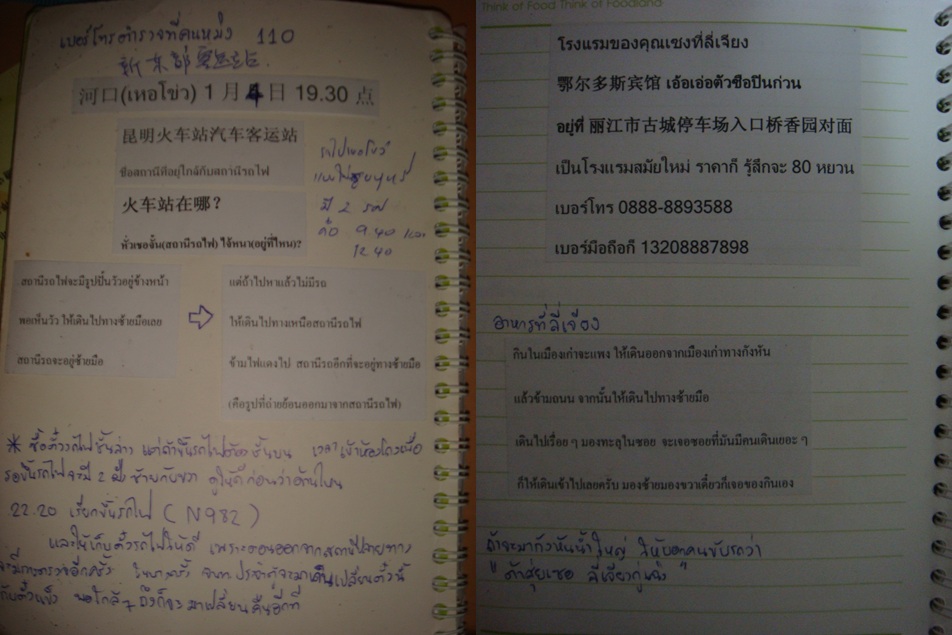 เบอร์โทรตำรวจที่คุนหมิง 110
河口(เหอโข่ว) 1 月 4 日 19.30 点
昆明火车站汽车客运站
ชื่อสถานีที่อยู่ใกล้กับสถานีรถไฟ
火车站在哪?
หั่วเชอจั้น(สถานีรถไฟ) ไจ้หนา(อยู่ที่ไหน)?
รถไปเหอโขว่
มี 2 รอบ
คือ 9.40 และ
12.40
สถานีรถไฟจะมีรูปปั้นวัวอยู่ข้างหน้า
พอเห็นวัว ให้เดินไปทางซ้ายมือเลย
สถานีรถจะอยู่ซ้ายมือ
แต่ถ้าไปหาแล้วไม่มีรถ
ให้เดินไปทางเหนือสถานีรถไฟ
ข้ามไฟแดงไป สถานีรถอีกที่จะอยู่ทางซ้ายมือ
(คือรูปที่ถ่ายย้อนออกมาจากสถานีรถไฟ)
* ซื้อตั๋วรถไฟชั้นล่าง แต่ถ้าขึ้นรถไฟต้องชั้นบน เวลาเข้าห้องโถงเพื่อ
รอขึ้นรถไฟจะมี 2 ฝั่ง ซ้ายกับขวา ดูให้ดีก่อนว่าด้านไหน
22.20 เรียกขึ้นรถไฟ (N982)
และให้เก็บตั๋วรถไฟให้ดี เพราะตอนออกจากสถานีปลายทาง
จะมีการตรวจอีกครั้ง
Think of Food Think of Foodland
โรงแรมของคุณเชงที่ลี่เจียง
鄂尔多斯宾馆 เอ้อเอ่อตัวซือปินก่วน
อยู่ที่ 丽江市古城停车场入口桥香园对面
เป็นโรงแรมสมัยใหม่ ราคาก็ รู้สึกจะ 80 หยวน
เบอร์โทร 0888-8893588
เบอร์มือถือก็ 13208887898
อาหารที่ลี่เจียง
กินในเมืองเก่าจะแพง ให้เดินออกจากเมืองเก่าทางกังหัน
แล้วข้ามถนน จากนั้นให้เดินไปทางซ้ายมือ
เดินไปเรื่อย ๆ มองทะลุในซอย จะเจอซอยที่มันมีคนเดินเยอะ ๆ
ก็ให้เดินเข้าไปเลยครับ มองซ้ายมองขวาเดี๋ยวก็เจอของกินเอง
ถ้าจะมากังหันน้ำใหญ่ ให้บอกคนขับรถว่า
" ต้าสุ่ยเชอ ลี่เจียงกู่เฉิง "